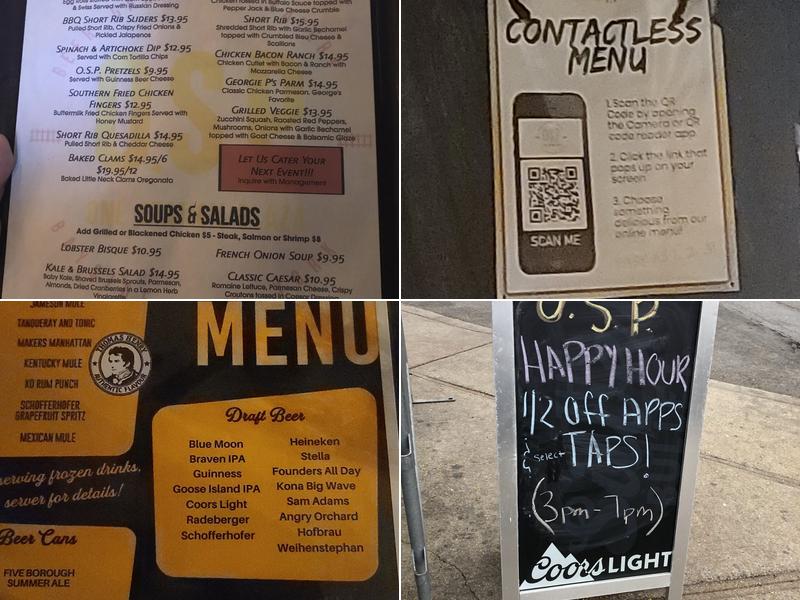 Served with Russian Dressing
BBQ Short Rib Sliders $13.95
Pulled Short Rib, Crispy Fried Onions &
Pickled Jalapenos
Spinach & Artichoke Dip $12.95
Served with Corn Tortilla Chips
O.S.P. Pretzels $9.95
Served with Guinness Beer Cheese
Southern Fried Chicken
Fingers $12.95
Buttermilk Fried Chicken Fingers Served with
Honey Mustard
Short Rib Quesadilla $14.95
Pulled Short Rib & Cheddar Cheese
Baked Clams $14.95/6
$19.95/12
Baked Little Neck Clams Oregonata
Chicken tossed in Buffalo Sauce topped with
Pepper Jack & Blue Cheese Crumble
Short Rib $15.95
Shredded Short Rib with Garlic Bechamel
topped with Crumbled Bleu Cheese &
Scallions
Chicken Bacon Ranch $14.95
Chicken Cutlet with Bacon & Ranch with
Mozzarella Cheese
Georgie P's Parm $14.95
Classic Chicken Parmesan, George's
Favorite
Grilled Veggie $13.95
Zucchini Squash, Raosted Red Peppers,
Mushrooms, Onions with Garlic Bechamel
topped with Goat Cheese & Balsamic Glaze
Let Us Cater Your
Next Event!!!
Inquire with Management
SOUPS & SALADS
Add Grilled or Blackened Chicken $5 - Steak, Salmon or Shrimp $8
Lobster Bisque $10.95
Kale & Brussels Salad $14.95
Baby Kale, Shaved Brussels Sprouts, Parmesan,
Almonds, Dried Cranberries in a Lemon Herb
Vinaigrette
French Onion Soup $9.95
Classic Caesar $10.95
Romaine Lettuce, Parmesan Cheese, Crispy
Croutons tossed in Caesar Dressing
CONTACTLESS
MENU
1. Scan the QR
Code by opening
the Camera or QR
code reader app
2. Click the link that
pops up on your
screen
3. Choose
something
delicious from our
online menu!
SCAN ME
JAMESON MULE
TANQUERAY AND TONIC
MAKERS MANHATTAN
KENTUCKY MULE
XO RUM PUNCH
SCHOFFERHOFER
GRAPEFRUIT SPRITZ
MEXICAN MULE
THOMAS HENRY
AUTHENTIC FLAVOUR
serving frozen drinks,
server for details!
Beer Cans
FIVE BOROUGH
SUMMER ALE
MENU
Draft Beer
Blue Moon
Braven IPA
Guinness
Goose Island IPA
Coors Light
Radeberger
Schofferhofer
Heineken
Stella
Founders All Day
Kona Big Wave
Sam Adams
Angry Orchard
Hofbrau
Weihenstephan
O.S.P.
HAPPY HOUR
1/2 Off APPS
& select TAPS!
(3pm-7pm)
Coors LIGHT